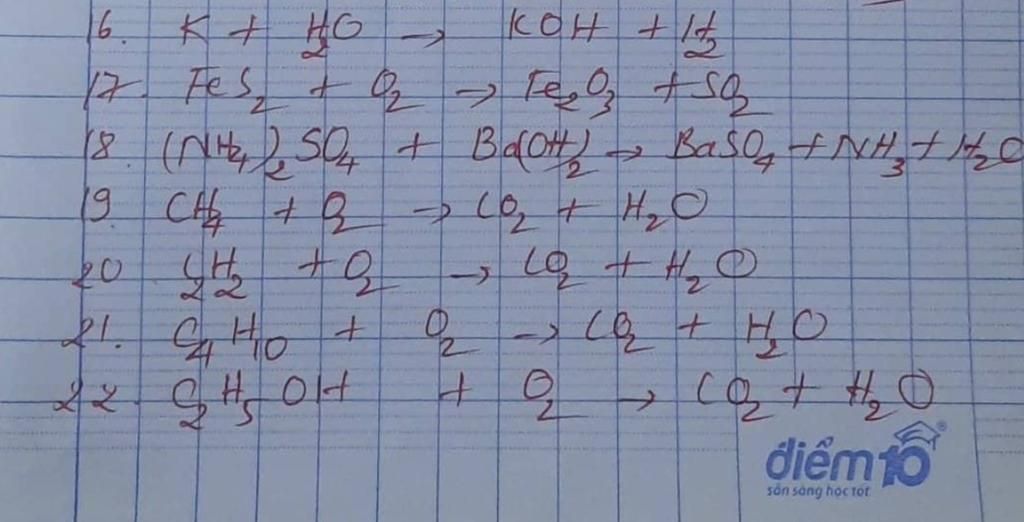 16. K + H₂O → KOH + H₂
17. FeS₂ + O₂ → Fe₂O₃ + SO₂
18. (NH₄)₂SO₄ + Ba(OH)₂ → BaSO₄ + NH₃ + H₂O
19. CH₄ + O₂ → CO₂ + H₂O
20 C₂H₂ + O₂ → CO₂ + H₂O
21. C₄H₁₀ + O₂ → CO₂ + H₂O
22. C₂H₅OH + O₂ → CO₂ + H₂O
điểm10
sẵn sàng học tốt